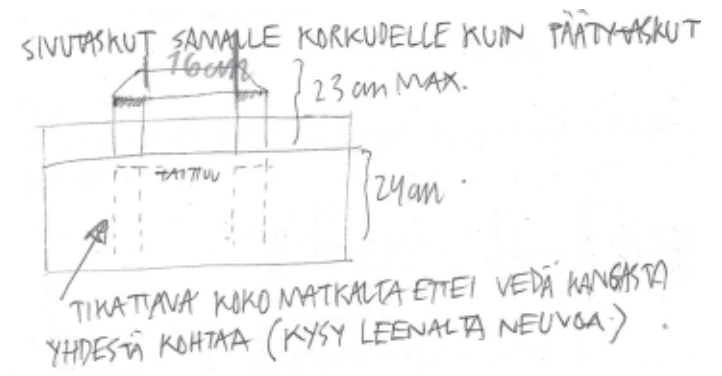 SIVUTASKUT SAMALLE KORKUDELLE KUIN PÄÄTYTASKUT
16cm
23 cm MAX.
TAITTUU
24cm
TIKATTAVA KOKO MATKALTA ETTEI VEDÄ KANGASTA
YHDESTÄ KOHTAA (KYSY LEENALTA NEUVOA.)